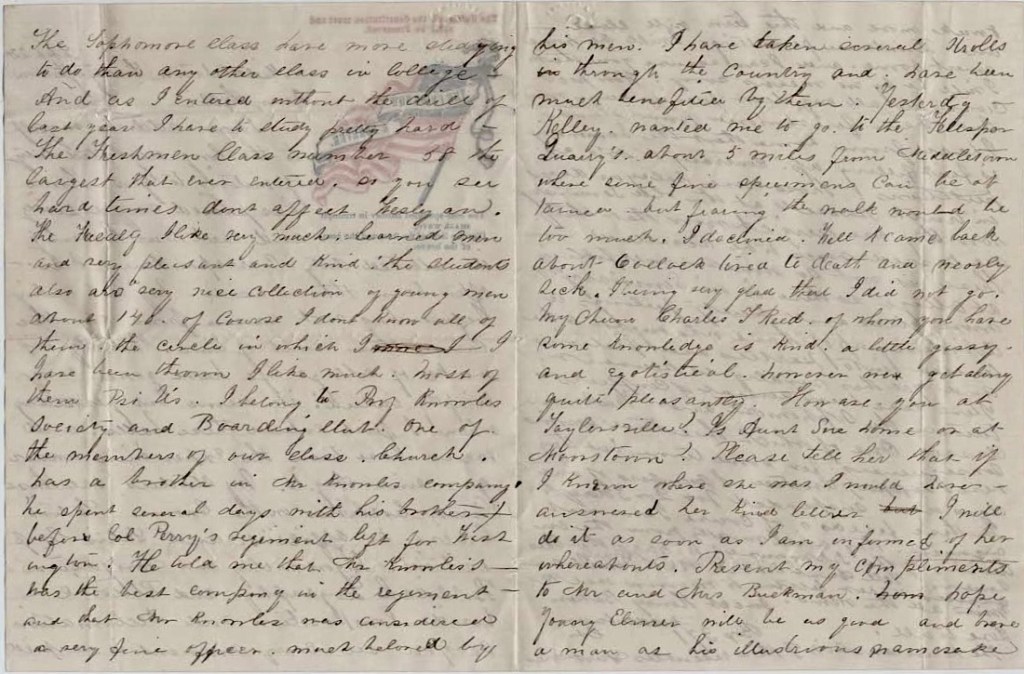 The Sophomore Class have more studying
to do than any other class in College
And as I entered without the drill of
last year I have to study pretty hard
The Freshmen Class number 58 the
largest that ever entered, so you see
hard times dont affect Wesleyan.
The Faculty I like very much, learned men
and very pleasant and kind: the students
also are very nice collection of young men
about 140. of course I dont know all of
them, the circle in which I I
have been thrown I like much. most of
them Psi U's. I belong to Knowles
Society and Boarding Club. One of
the members of our class. Church.
has a brother in Mr Knowles company,
he spent several days with his brother
before Col Perry's regiment left for Wash
ington. He told me that Mr Knowles's
was the best company in the regiment
and that Mr Knowles was considered
a very fine officer. much beloved by
his men. I have taken several strolls
in through the Country and. have been
much benefitted by them. Yesterday
Kelley. wanted me to go. to the Felspar
Quarry's. about 5 miles from Middletown
where some fine specimens can be ob
tained. but fearing the walk would be
too much. I declined. Will K came back
about 6 oclock tired to death and nearly
sick. I being very glad that I did not go.
My Chum Charles T Reed. of whom you have
some knowledge is kind. a little
and egotistical. however we get along
quite pleasantly. How are you at
Taylorsville? Is Aunt Sue home or at
? Please tell her that if
I known where she was I would have
answered her kind letter but I will
do it as soon as I am informed of her
whereabouts. Present my compliments
to Mr and Mrs Buckman. hope
young Elmer will be as good and brave
a man as his illustrious namesake